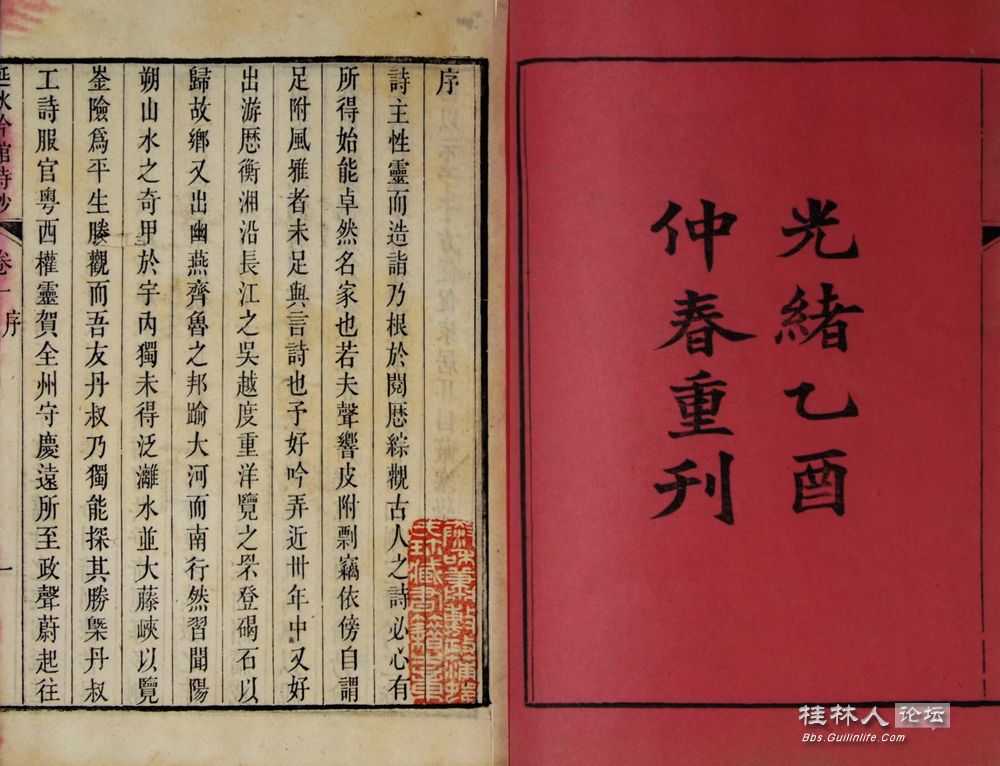 光緒乙酉
仲春重刊
序
詩主性靈而造詣乃根於閱歷綜觀古人之詩必心有
所得始能卓然名家也若夫聲響皮附剽竊依傍自謂
足附風雅者未足與言詩也予好吟弄近卅年中又好
出游歷衡湘沿長江之吳越度重洋覽之罘登碣石以
歸故鄉又出幽燕齊魯之邦踰大河而南行然習聞陽
朔山水之奇甲於宇內獨未得泛灕水並大藤峽以覽
崟險為平生勝觀而吾友丹叔乃獨能探其勝槩丹叔
工詩服官粵西權靈賀全州守慶遠所至政聲蔚起往
延秋吟館詩鈔 卷一 序 一
桂林人论坛
Bbs.Guilinlife.com